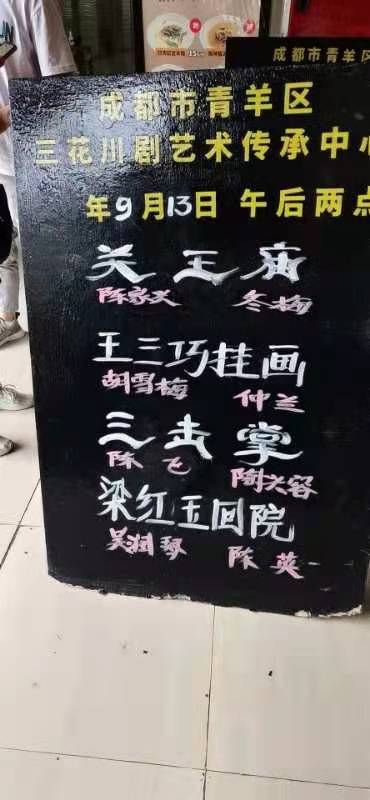 成都市青羊区
成都市青羊区
三花川剧艺术传承中心
年9月13日 午后两点
关王庙
陈家文 冬梅
王三巧挂画
胡雪梅 仲兰
三击掌
陈飞 陶长容
梁红玉回院
吴润琴 陈英